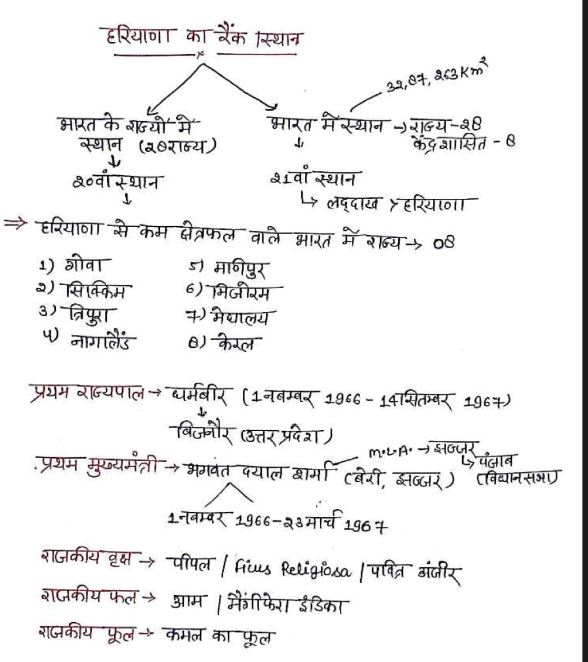 हरियाणा का रैंक / स्थान
32,87,263 Km²
भारत के राज्यों में
स्थान (28 राज्य)
20वां स्थान
भारत में स्थान → राज्य - 28
केंद्रशासित - 8
21वां स्थान
↳ लद्दाख > हरियाणा
⇒ हरियाणा से कम क्षेत्रफल वाले भारत में राज्य → 08
1) गोवा
2) सिक्किम
3) त्रिपुरा
4) नागालैंड
5) मणिपुर
6) मिजोरम
7) मेघालय
8) केरल
प्रथम राज्यपाल → धर्मबीर (1 नबम्बर 1966 - 14 सितम्बर 1967)
बिजनौर (उत्तर प्रदेश)
प्रथम मुख्यमंत्री → भगवत दयाल शर्मा (बेरी, झज्जर)
M.L.A. → झज्जर
↳ पंजाब
(विधानसभा)
1 नवम्बर 1966 - 23 मार्च 1967
राजकीय वृक्ष → पीपल / Ficus Religiosa / पवित्र अंजीर
राजकीय फल → आम / मैंगीफेरा इंडिका
राजकीय फूल → कमल का फूल